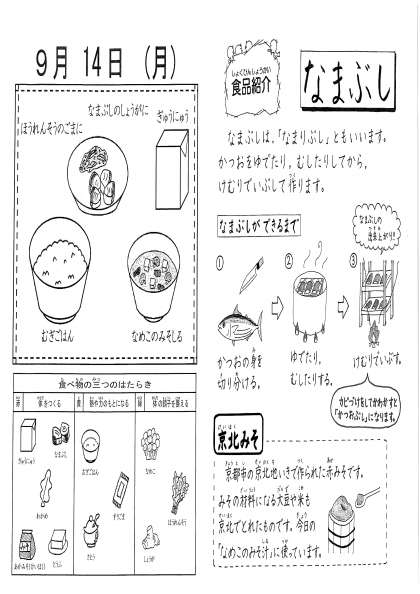 9月 14日 （月）
なまぶしのしょうがに
ぎゅうにゅう
ほうれんそうのごまに
むぎごはん
なめこのみそしる
食べ物の三つのはたらき
赤 体をつくる
黄 熱や力のもとになる
緑 体の調子を整える
ぎゅうにゅう
なまぶし
わかめ
あかみそ
とうふ
むぎごはん
すりごま
さとう
なめこ
ほうれんそう
しょうが
しょくひんしょうかい
食品紹介
なまぶし
なまぶしは、「なまりぶし」ともいいます。
かつおをゆでたり、むしたりしてから、
けむりでいぶして作ります。
なまぶしができるまで
①
かつおの身を
切り分ける。
②
ゆでたり、
むしたりする。
③
なまぶしの
出来上がり!
けむりでいぶす。
カビづけをしてかわかすと
「かつおぶし」になります。
京北みそ
京都市の京北地いきで作られた赤みそです。
みその材料になる大豆や米も
京北でとれたものです。今日の
「なめこのみそ汁」に使っています。